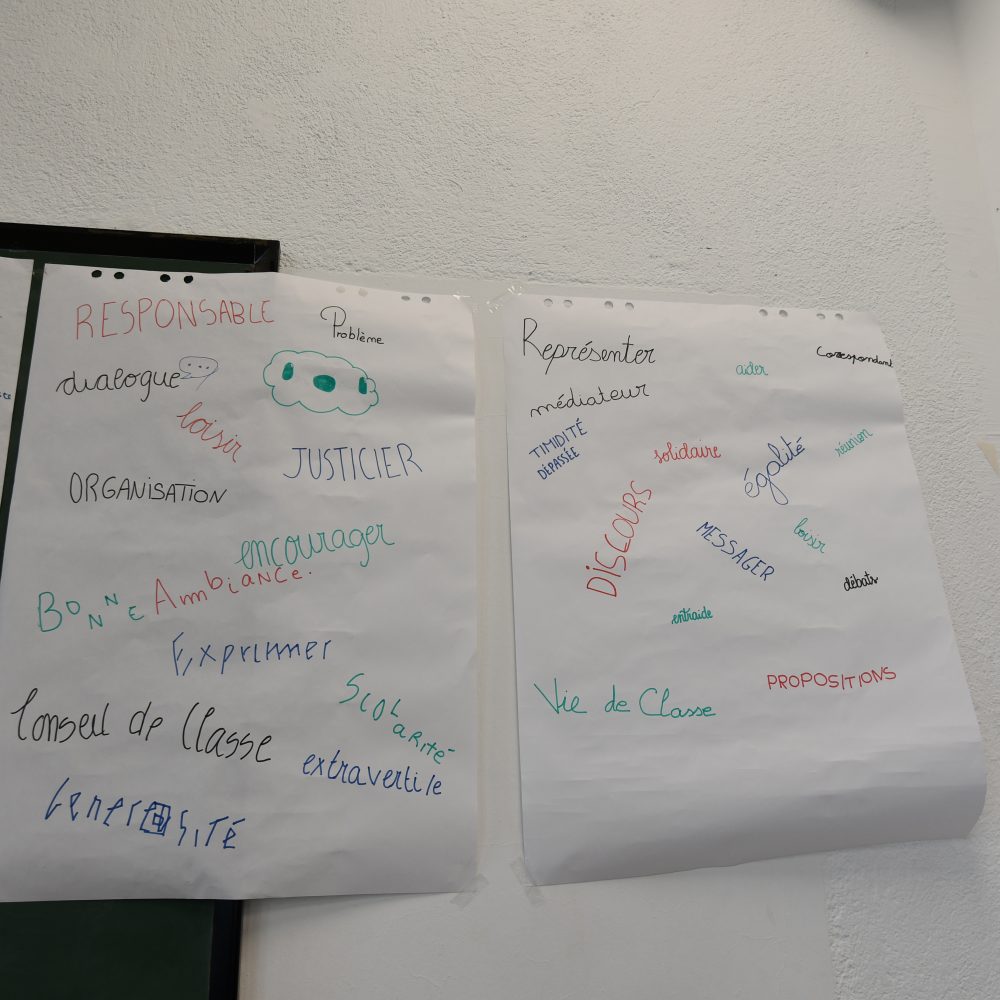 RESPONSABLE
Problème
dialogue
loisir
JUSTICIER
ORGANISATION
encourager
BONNE Ambiance.
Exprimer
Scolarité
Conseil de Classe
extraverti/e
Generosité
Représenter
Correspondant
aider
médiateur
TIMIDITÉ
DÉPASSÉE
solidaire
égalité
réunion
DISCOURS
MESSAGER
loisir
débats
entraide
PROPOSITIONS
Vie de Classe